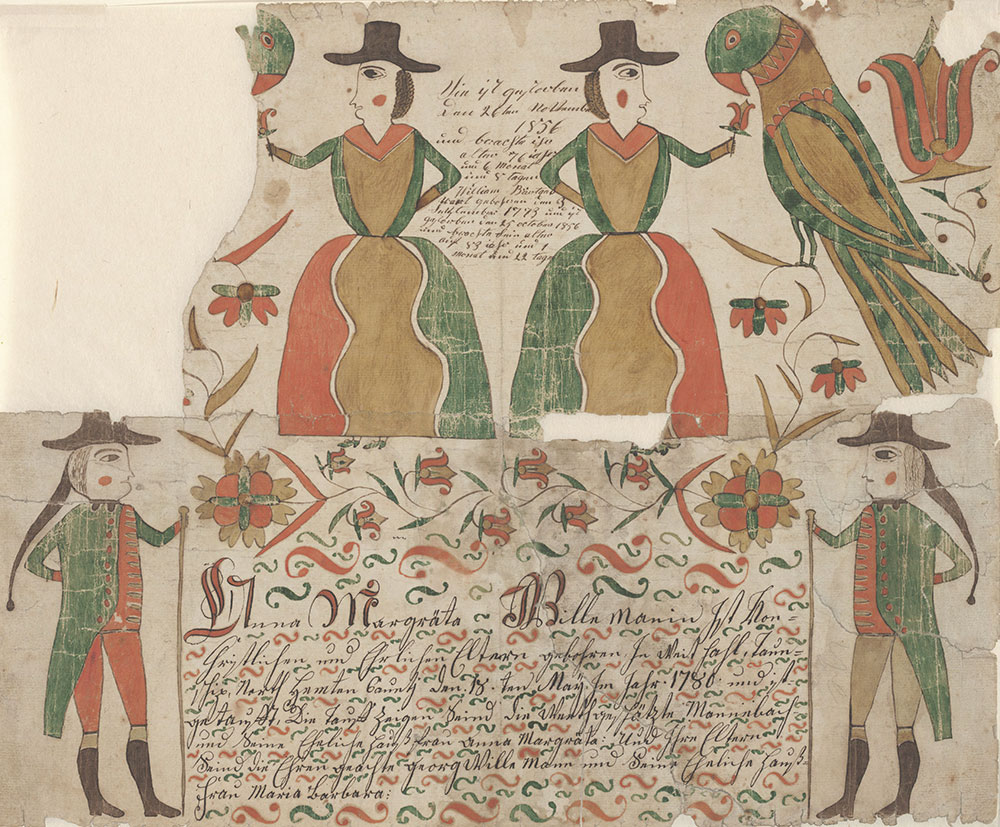 Sie ist gestorben
den 26ten Nofember
1856
und brachte ihr
alter 76 jahr
und 6 monat
und 8 tagen
William
gebohren den 3
September 1773 und ist
gestorben den 25 october 1856
und brachte sein alter
auf 83 jahr und 1
monat und 22 tagen
Anna Margräta Wille Manin Ist Von
Christlichen und Ehrlichen Eltern gebohren In Weit Hahl, taun=
ship, North Hemten Caunty den 18 ten May Im Jahr: 1780: und ist
getaufft. Die tauff Zeigen Seind die Mannebach
und Seine Eheliche Hauß frau anna Margräta: Und Ihre Eltern
Seind die Ehren geachte georg Wille Mann und Seine Eheliche Hauß=
frau Maria barbara: